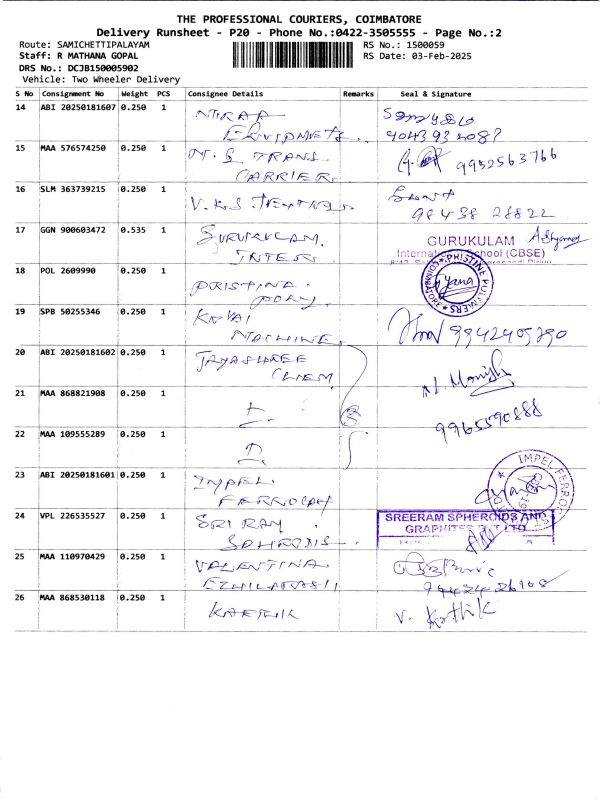 THE PROFESSIONAL COURIERS, COIMBATORE
Delivery Runsheet - P20 - Phone No.:0422-3505555 - Page No.:2
Route: SAMICHETTIPALAYAM
RS No.: 1500059
Staff: R MATHANA GOPAL
RS Date: 03-Feb-2025
DRS No.: DCJB150005902
Vehicle: Two Wheeler Delivery
S No Consignment No Weight PCS Consignee Details Remarks Seal & Signature
14 ABI 20250181607 0.250 1
9043932087
15 MAA 576574250 0.250 1 M.S TRANS 9952563766
CARRIER
16 SLM 363739215 0.250 1 98438 28822
17 GGN 900603472 0.535 1 GURUKULAM
INTER GURUKULAM
International School (CBSE)
18 POL 2609990 0.250 1 PRISTINA PRISTINE POLYMERS
POLY COIMBATORE
19 SPB 50255346 0.250 1 KOVAI 9942405390
MACHINE
20 ABI 20250181602 0.250 1 JAYASHREE
CHEM
21 MAA 868821908 0.250 1 9965590888
22 MAA 109555289 0.250 1
23 ABI 20250181601 0.250 1 IMPEL IMPEL FERROC
24 VPL 226535527 0.250 1 SRI RAM SREERAM SPHEROIDS AND
SPHEROIDS GRAPHITES PVT LTD
25 MAA 110970429 0.250 1 VALENTINA
EZHILARASI
26 MAA 868530118 0.250 1 KARTHIK V. Karthik